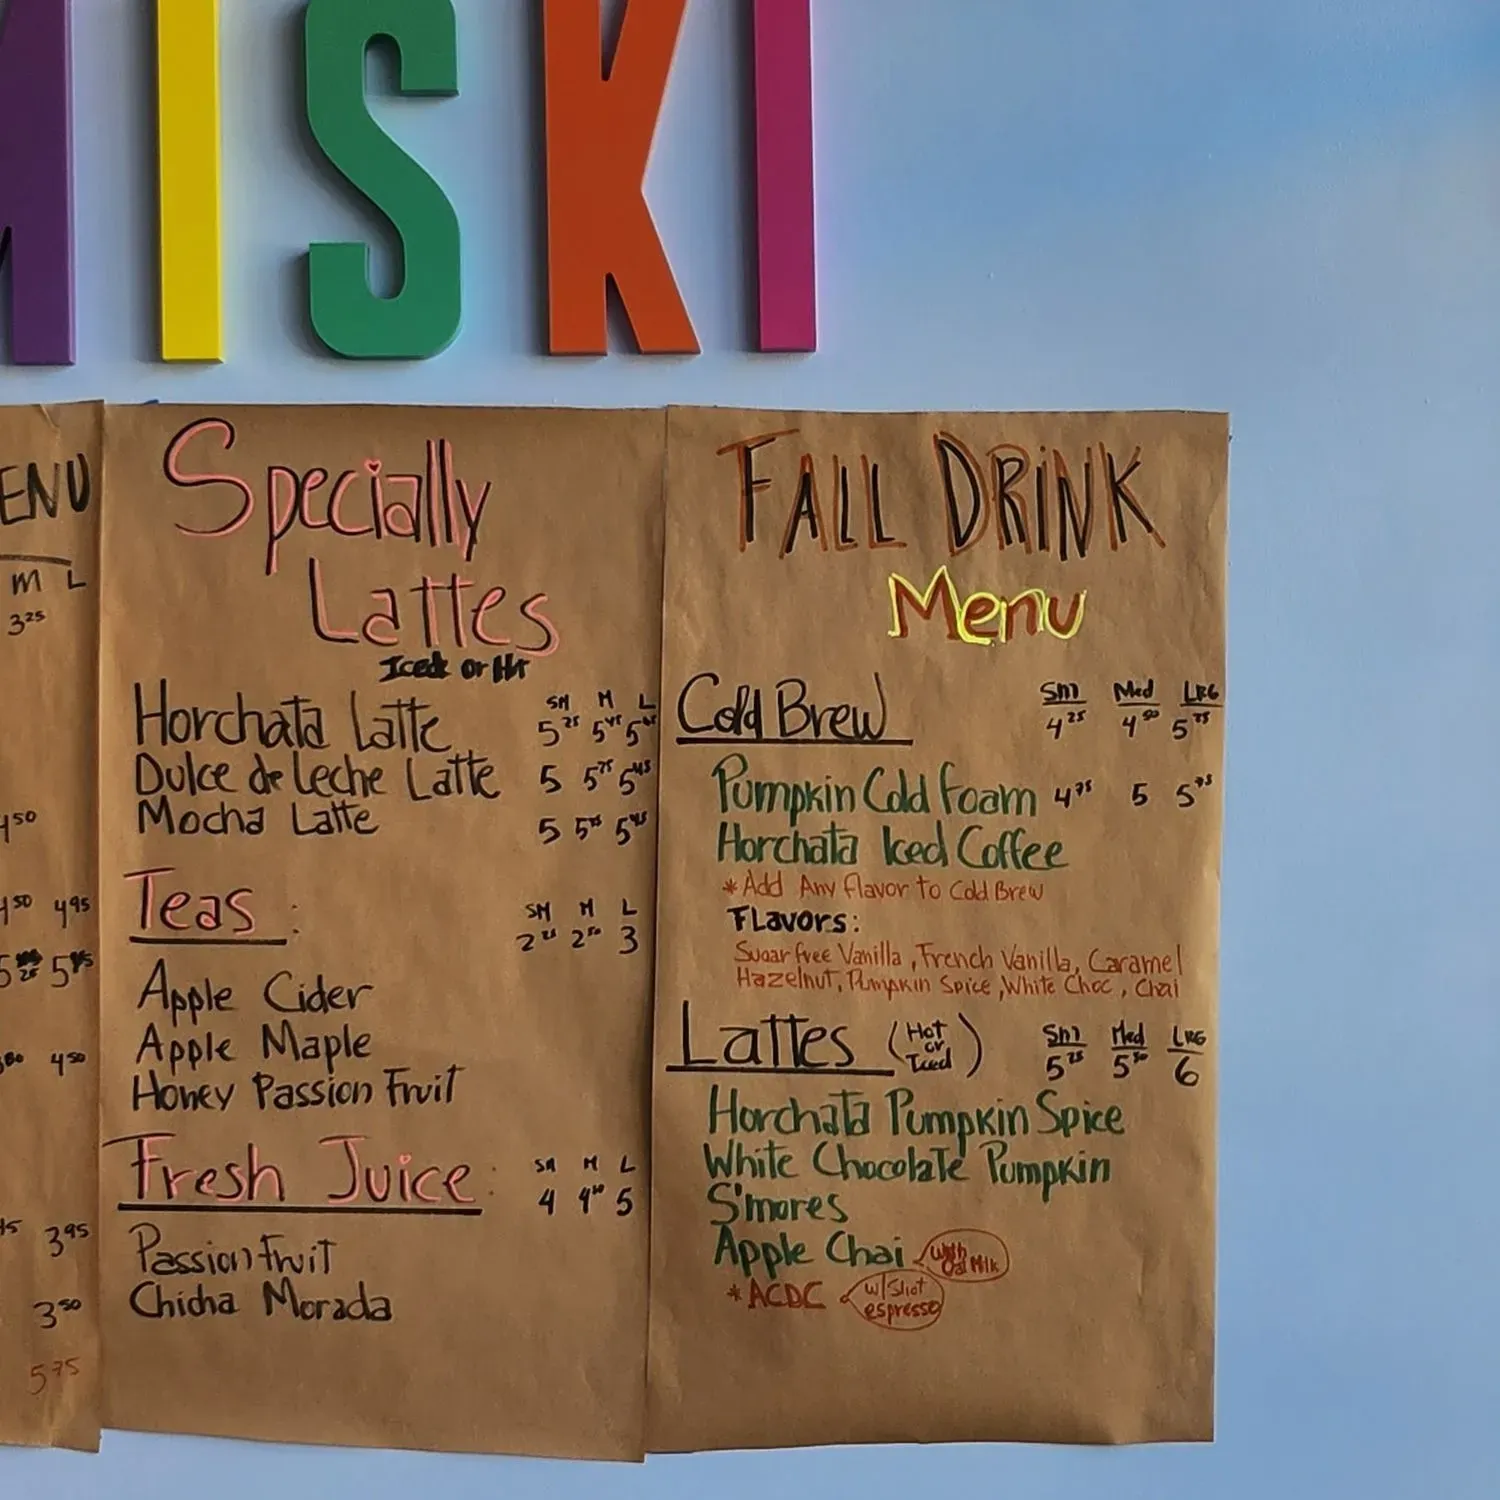 MISKI
ENU
M L
3.25
4.50
4.50 4.95
4.50
3.95
3.50
5.75
Specially
Lattes
Iced or Hot
SM M L
Horchata Latte 5.25 5.45
Dulce de Leche Latte 5 5.75
Mocha Latte 5
Teas:
SM M L
2.25 2.50 3
Apple Cider
Apple Maple
Honey Passion Fruit
Fresh Juice:
SM M L
4 4.50 5
Passion Fruit
Chicha Morada
FALL DRINK
Menu
Cold Brew
Sml Med LRG
4.25 4.50 5.75
Pumpkin Cold Foam 4.75 5 5.75
Horchata Iced Coffee
*Add Any Flavor to Cold Brew
FLavors:
Sugar free Vanilla, French Vanilla, Caramel
Hazelnut, Pumpkin Spice, White Choc, Chai
Lattes (Hot or Iced)
Sml Med LRG
5.25 5.50 6
Horchata Pumpkin Spice
White Chocolate Pumpkin
S'mores
Apple Chai with Oat Milk
*ACDC w/ Shot espresso